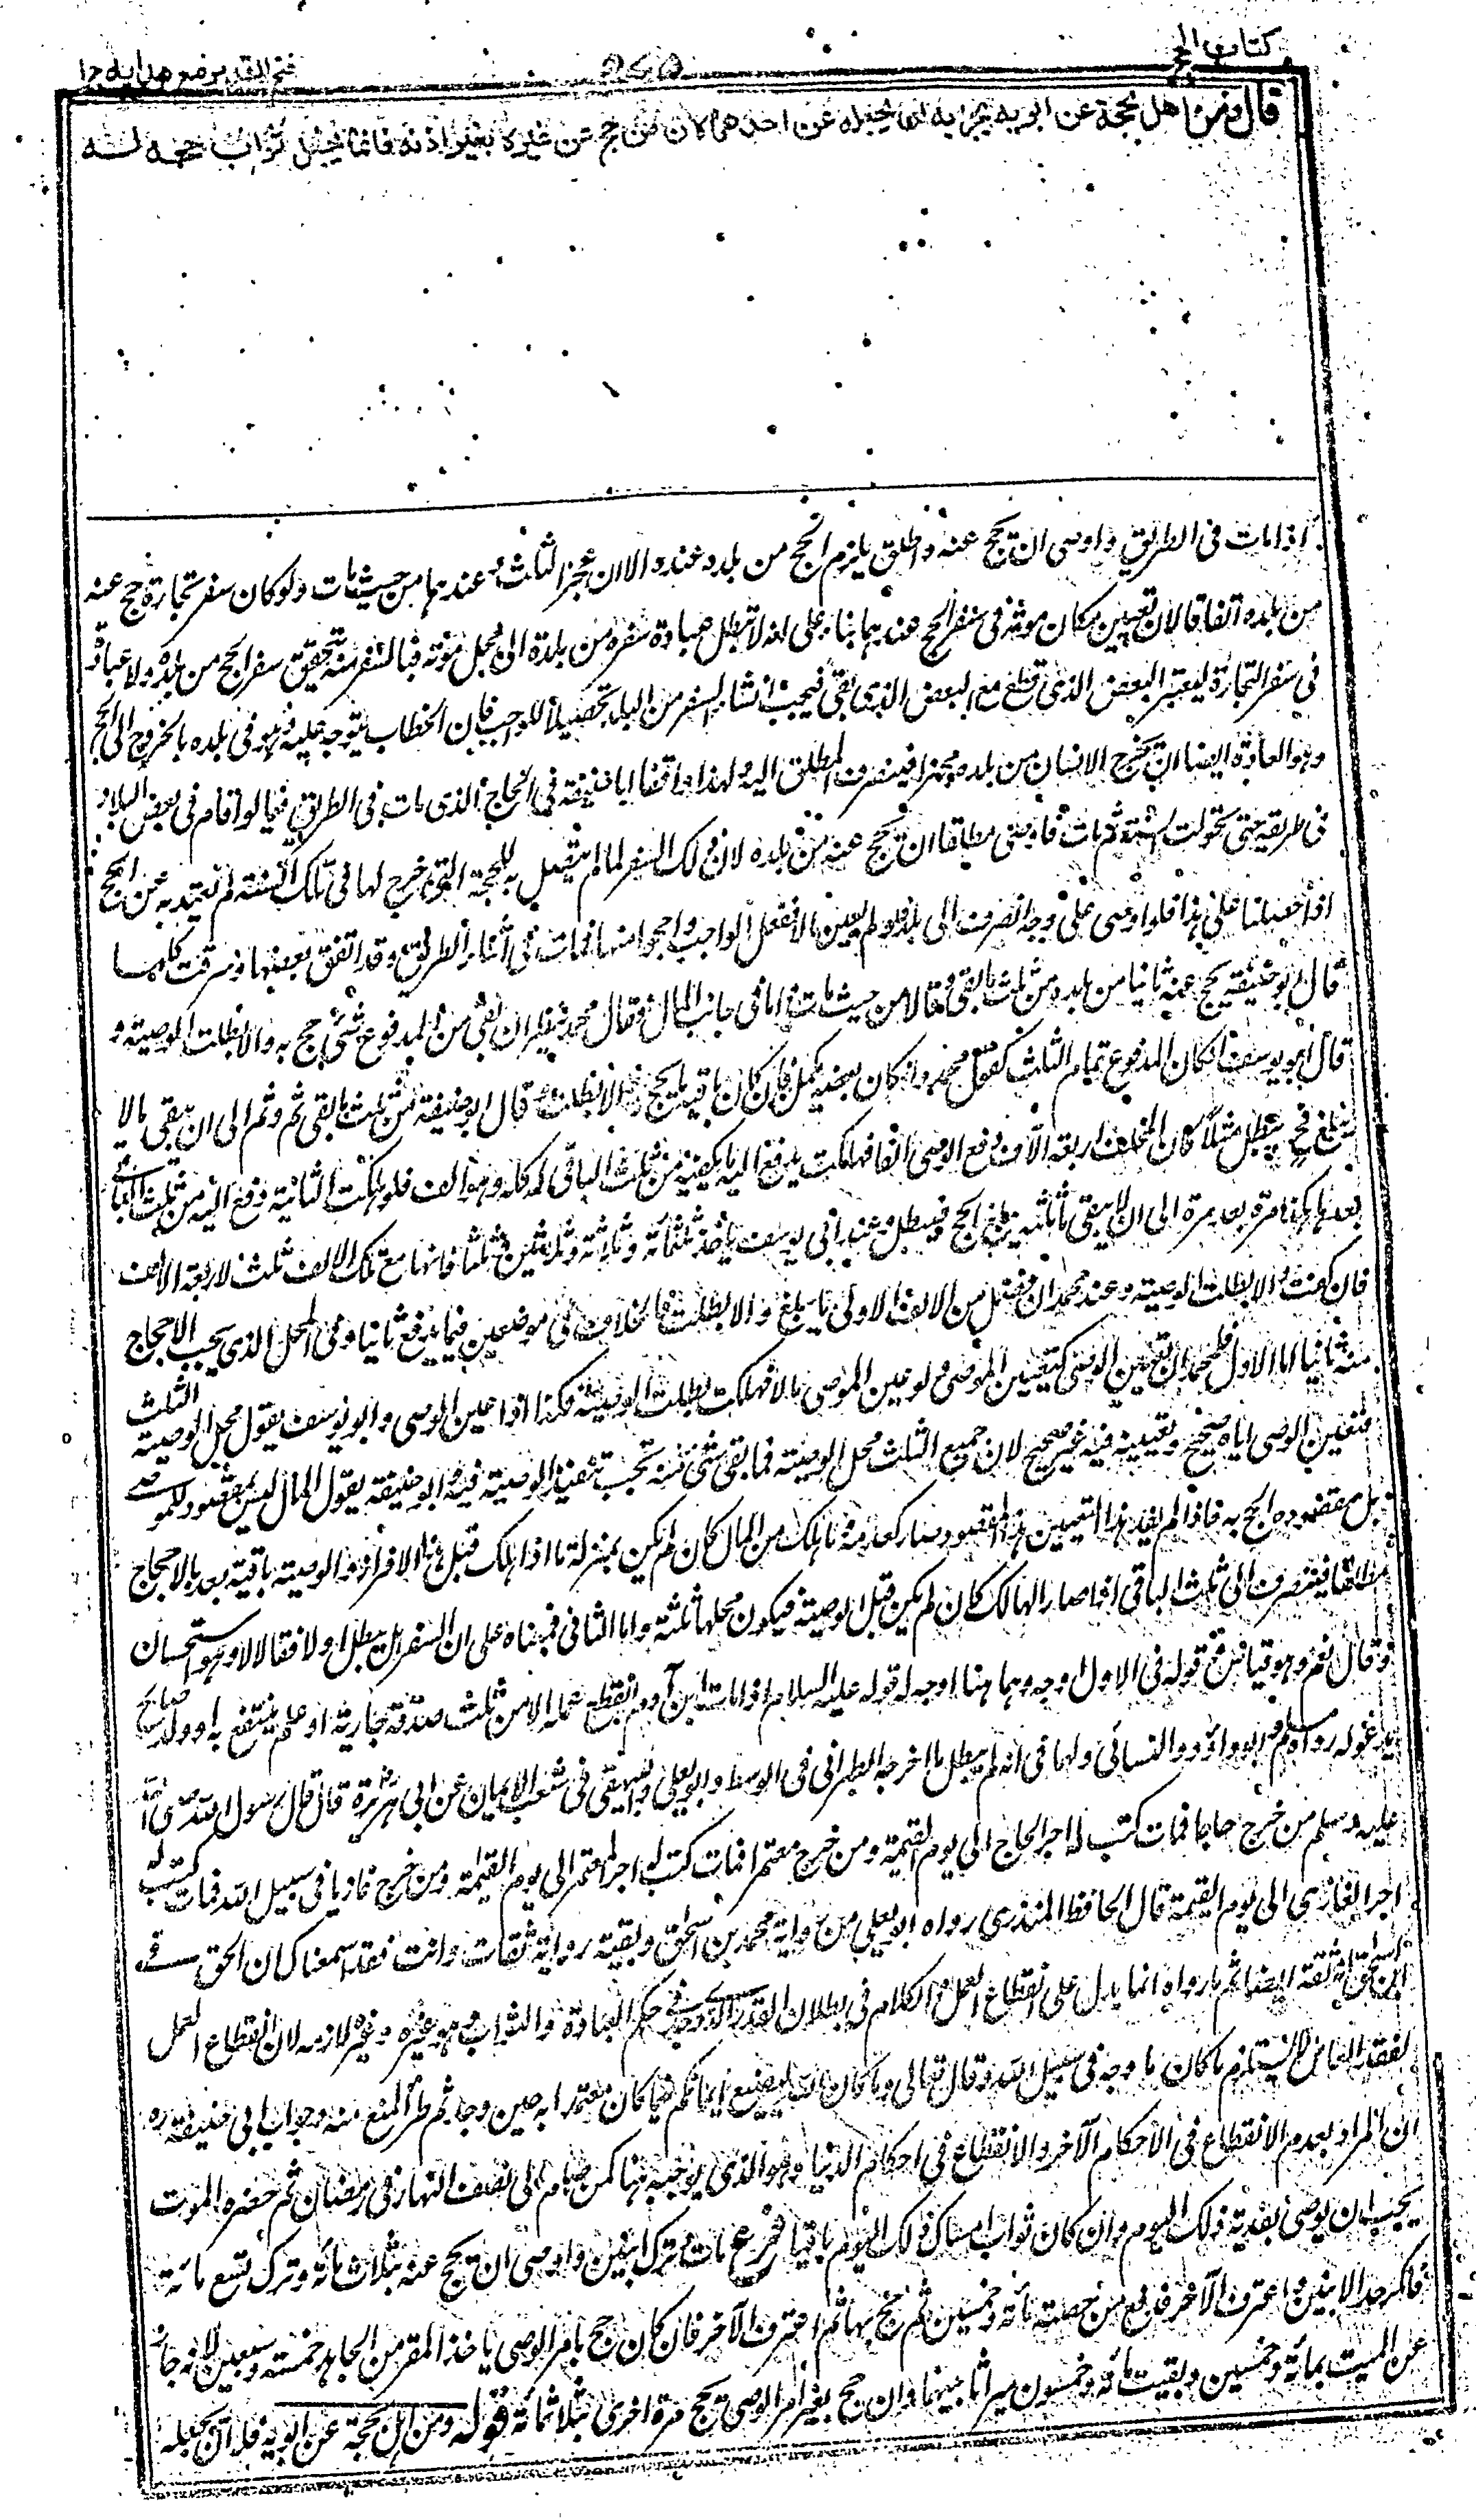 كتاب الحج
فتح القدير مع هدايه ج ١
قال ومن اهل بحجة عن ابويه يجزيه ان يجعله عن احدهما لان من حج عن غيره بغير اذنه فانما يجعل ثواب حجه له
اذا مات فى الطريق واوصى ان يحج عنه واطلق يلزم الحج من بلده عنده الا ان عجز الثلث وعندهما من حيث مات ولو كان سفر تجارة حج عنه
من بلده اتفاقا لان تعيين مكان موته فى سفر الحج عندهما بناء على انه لا تبطل عبادة سفره من بلده الى محل موته فبالسفر منه يتحقق سفر الحج من بلده ولا عبادة
فى سفر التجارة ليعتبر البعض الذى قطع مع البعض الذى بقى فيجب انشاء السفر من البلد تحصيلا للواجب فان الخطاب يتوجه عليه وهو فى بلده بالخروج الى الحج
وهو العادة ايضا ان يخرج الانسان من بلده مجهزا فينصرف المطلق اليه ولهذا وافقا ابا حنيفة فى الحاج الذى مات فى الطريق فيما لو اقام فى بعض البلاد
فى طريقه حتى تحولت السنة ثم مات فاوصى مطلقا ان يحج عنه من بلده لان ذلك السفر لما لم يتصل به للحجة التى خرج لها فى تلك السنة لم يعتد به عن الحج
اذا حصلنا على هذا فلو اوصى على وجه انصرف الى بلده ولم يعين مالا ففعل الواجب واحجوا منها فمات فى اثناء الطريق وقد انفق بعضها او سرقت كلها
قال ابو حنيفة يحج عنه ثانيا من بلده من ثلث ما بقى وقالا من حيث مات واما فى جانب المال فقال محمد ينظر ان بقى من المدفوع شئ حج به والا بطلت الوصية و
قال ابو يوسف ان كان المدفوع تمام الثلث كقول محمد وان كان بعضه يكمل فان كان باقيه ما يحج والا بطلت وقال ابو حنيفة من ثلث ما بقى ثم وثم الى ان يبقى ما لا
يبلغ فح يبطل مثلا كان المخلف اربعة آلاف دفع الوصى الفا فهلكت يدفع اليه ما يكفيه من ثلث الباقى او كله وهو الف فلو هلكت الثانية دفع اليه من ثلث الباقى
بعدها هكذا مرة بعد مرة الى ان لا يبقى ما ثلثه يبلغ الحج فيبطل وعند ابى يوسف ياخذ ثلثمائة وثلاثة وثلاثين وثلثا فانها مع تلك الالف ثلث الاربعة الآلاف
فان كفت والا بطلت الوصية وعند محمد ان فضل من الالف الاولى ما يبلغ والا بطلت فالخلاف فى موضعين فيما يدفع ثانيا وفى المحل الذى يجب الاحجاج
منه ثانيا اما الاول فلمحمد ان تعيين الوصى كتعيين الموصى ولو عين الموصى مالا فهلك بطلت الوصية فكذا اذا عين الوصى وابو يوسف يقول محل الوصية الثلث
فتعيين الوصى اياه صحيح وتعيينه فيه غير صحيح لان جميع الثلث محل الوصية فما بقى شئ منه تجب تنفيذ الوصية فيه وابو حنيفة يقول المال ليس مقصود للموصى
بل مقصوده الحج به فاذا لم يفد هذا التعيين هذا المقصود صار كعدمه وما هلك من المال كان لم يكن بمنزلة ما اذا هلك قبل هذا الافراز والوصية باقية بعد بالاحجاج
مطلقا فينصرف الى ثلث الباقى اذا صار الهالك كان لم يكن قبل الوصية فيكون محلها ثلثه واما الثانى فمبناه على ان السفر هل يبطل اولا فقالا لا وهو استحسان
وقال نعم وهو قياس وقوله فى الاول اوجه وهما هنا اوجه له قوله عليه السلام اذا مات ابن آدم انقطع عمله الا من ثلث صدقة جارية او علم ينتفع به او ولد صالح
يدعو له رواه مسلم وابو داؤد والنسائى ولهما فى انه لم يبطل ما اخرجه الطبرانى فى الاوسط وابو يعلى والبيهقى فى شعب الايمان عن ابى هريرة قال قال رسول الله صلى الله
عليه وسلم من خرج حاجا فمات كتب له اجر الحاج الى يوم القيمة ومن خرج معتمرا فمات كتب له اجر المعتمر الى يوم القيمة ومن خرج غازيا فى سبيل الله فمات كتب له
اجر الغازى الى يوم القيمة قال الحافظ المنذرى رواه ابو يعلى من رواية محمد بن اسحق وبقية رواته ثقات وانت فقد اسمعناك ان الحق فى
ابن اسحق انه ثقة ايضا ثم ما رواه انما يدل على انقطاع العمل والكلام فى بطلان القدر الذى وجد فى حكم العبادة والثواب وهو غيره وغير لازمه لان انقطاع العمل
لفقد العامل لا يستلزم ما كان ما وجد فى سبيل الله وقال تعالى وما كان الله ليضيع ايمانكم فيما كان معتمرا به حين وجد ثم طرأ المنع منه وجواب ابى حنيفة ره
ان المراد بعدم الانقطاع فى الاحكام الآخرة والانقطاع فى احكام الدنيا وهو الذى يوجبه هنا كمن صام الى نصف النهار فى رمضان ثم حضره الموت
يجب ان يوصى بفدية ذلك اليوم وان كان ثواب امساك ذلك اليوم باقيا فرع مات وترك ابنين واوصى ان يحج عنه بثلاث مائة وترك تسع مائة
فانكر احد الابنين واعترف الآخر فدفع من حصته مائة وخمسين ثم حج بها ثم اعترف الآخر فان كان حج بامر الوصى ياخذ المقر من الجاحد خمسة وسبعين لانه جاز
عن الميت بمائة وخمسين وبقيت مائة وخمسون ميراثا بينهما وان حج بغير امر الوصى يحج مرة اخرى بثلاثمائة قوله ومن اهل بحجة عن ابويه فله ان يجعله